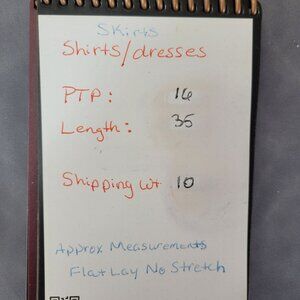 Skirts
Shirts/dresses
PTP: 16
Length: 35
Shipping wt 10
Approx Measurements
Flat Lay No Stretch